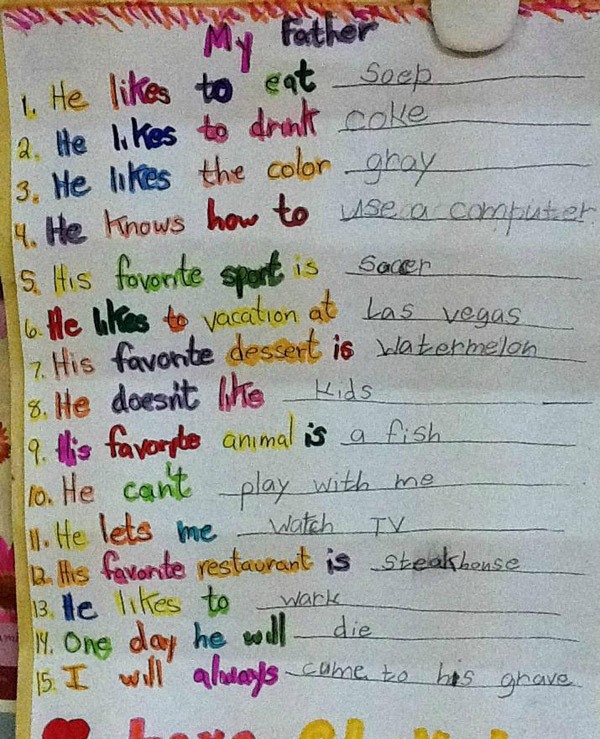 My Father
1. He likes to eat Soep
2. He likes to drink coke
3. He likes the color gray
4. He knows how to use a computer
5. His favorite sport is Soccer
6. He likes to vacation at Las vegas
7. His favorite dessert is watermelon
8. He doesn't like kids
9. His favorite animal is a fish
10. He can't play with me
11. He lets me watch TV
12. His favorite restaurant is steakhouse
13. He likes to wark
14. One day he will die
15. I will always came to his grave